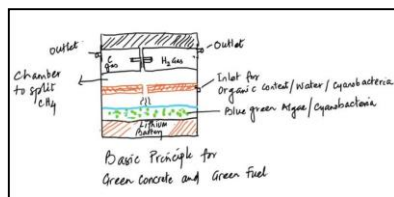 Outlet
Outlet
C
gas
H2 Gas
Chamber
to split
CH4
Inlet for
Organic Content/Water/Cyanobacteria
Blue green Algae/Cyanobacteria
Lithium
Battery
Basic Principle for
Green Concrete and Green Fuel